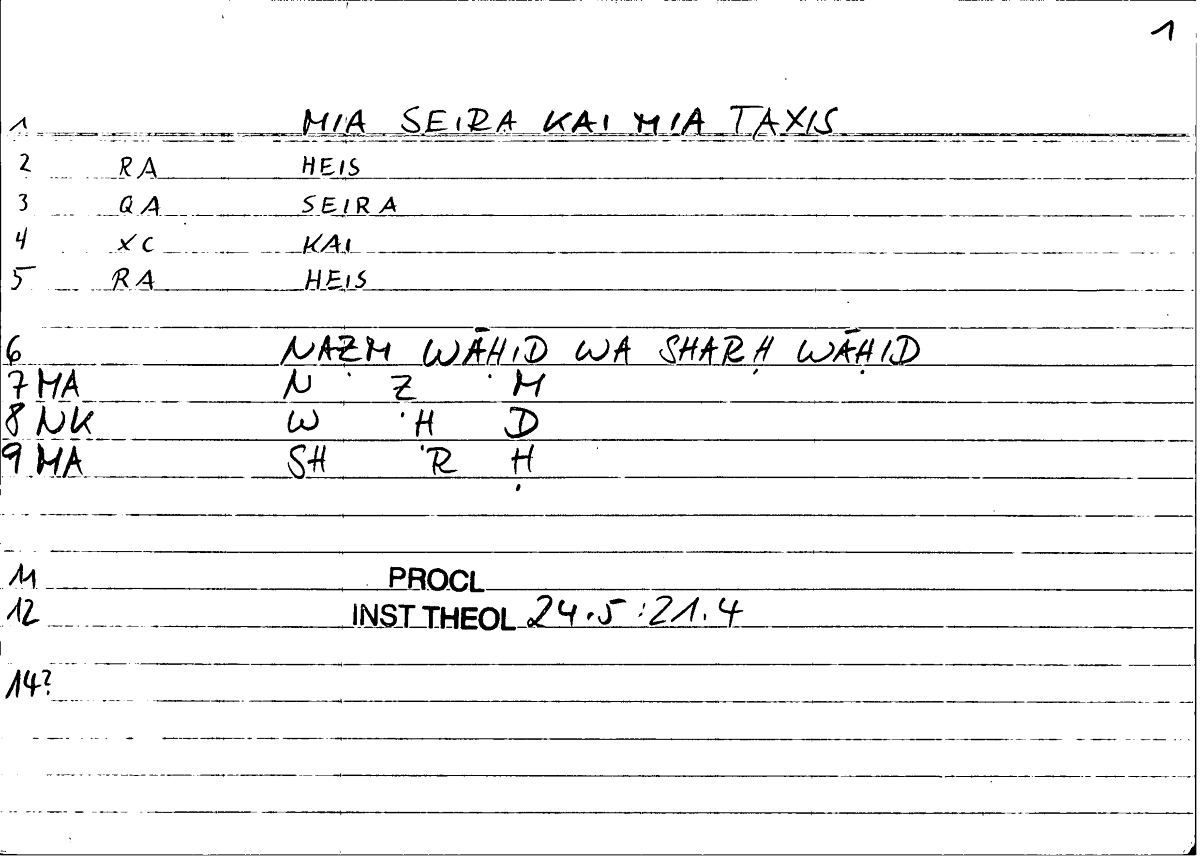 1
1 MIA SEIRA KAI MIA TAXIS
2 RA HEIS
3 QA SEIRA
4 XC KAI
5 RA HEIS
6 NAẒM WĀḤID WA SHARḤ WĀḤID
7 MA N Ẓ M
8 NK W Ḥ D
9 MA SH R Ḥ
11 PROCL
12 INST THEOL 24.5 :21.4
14?